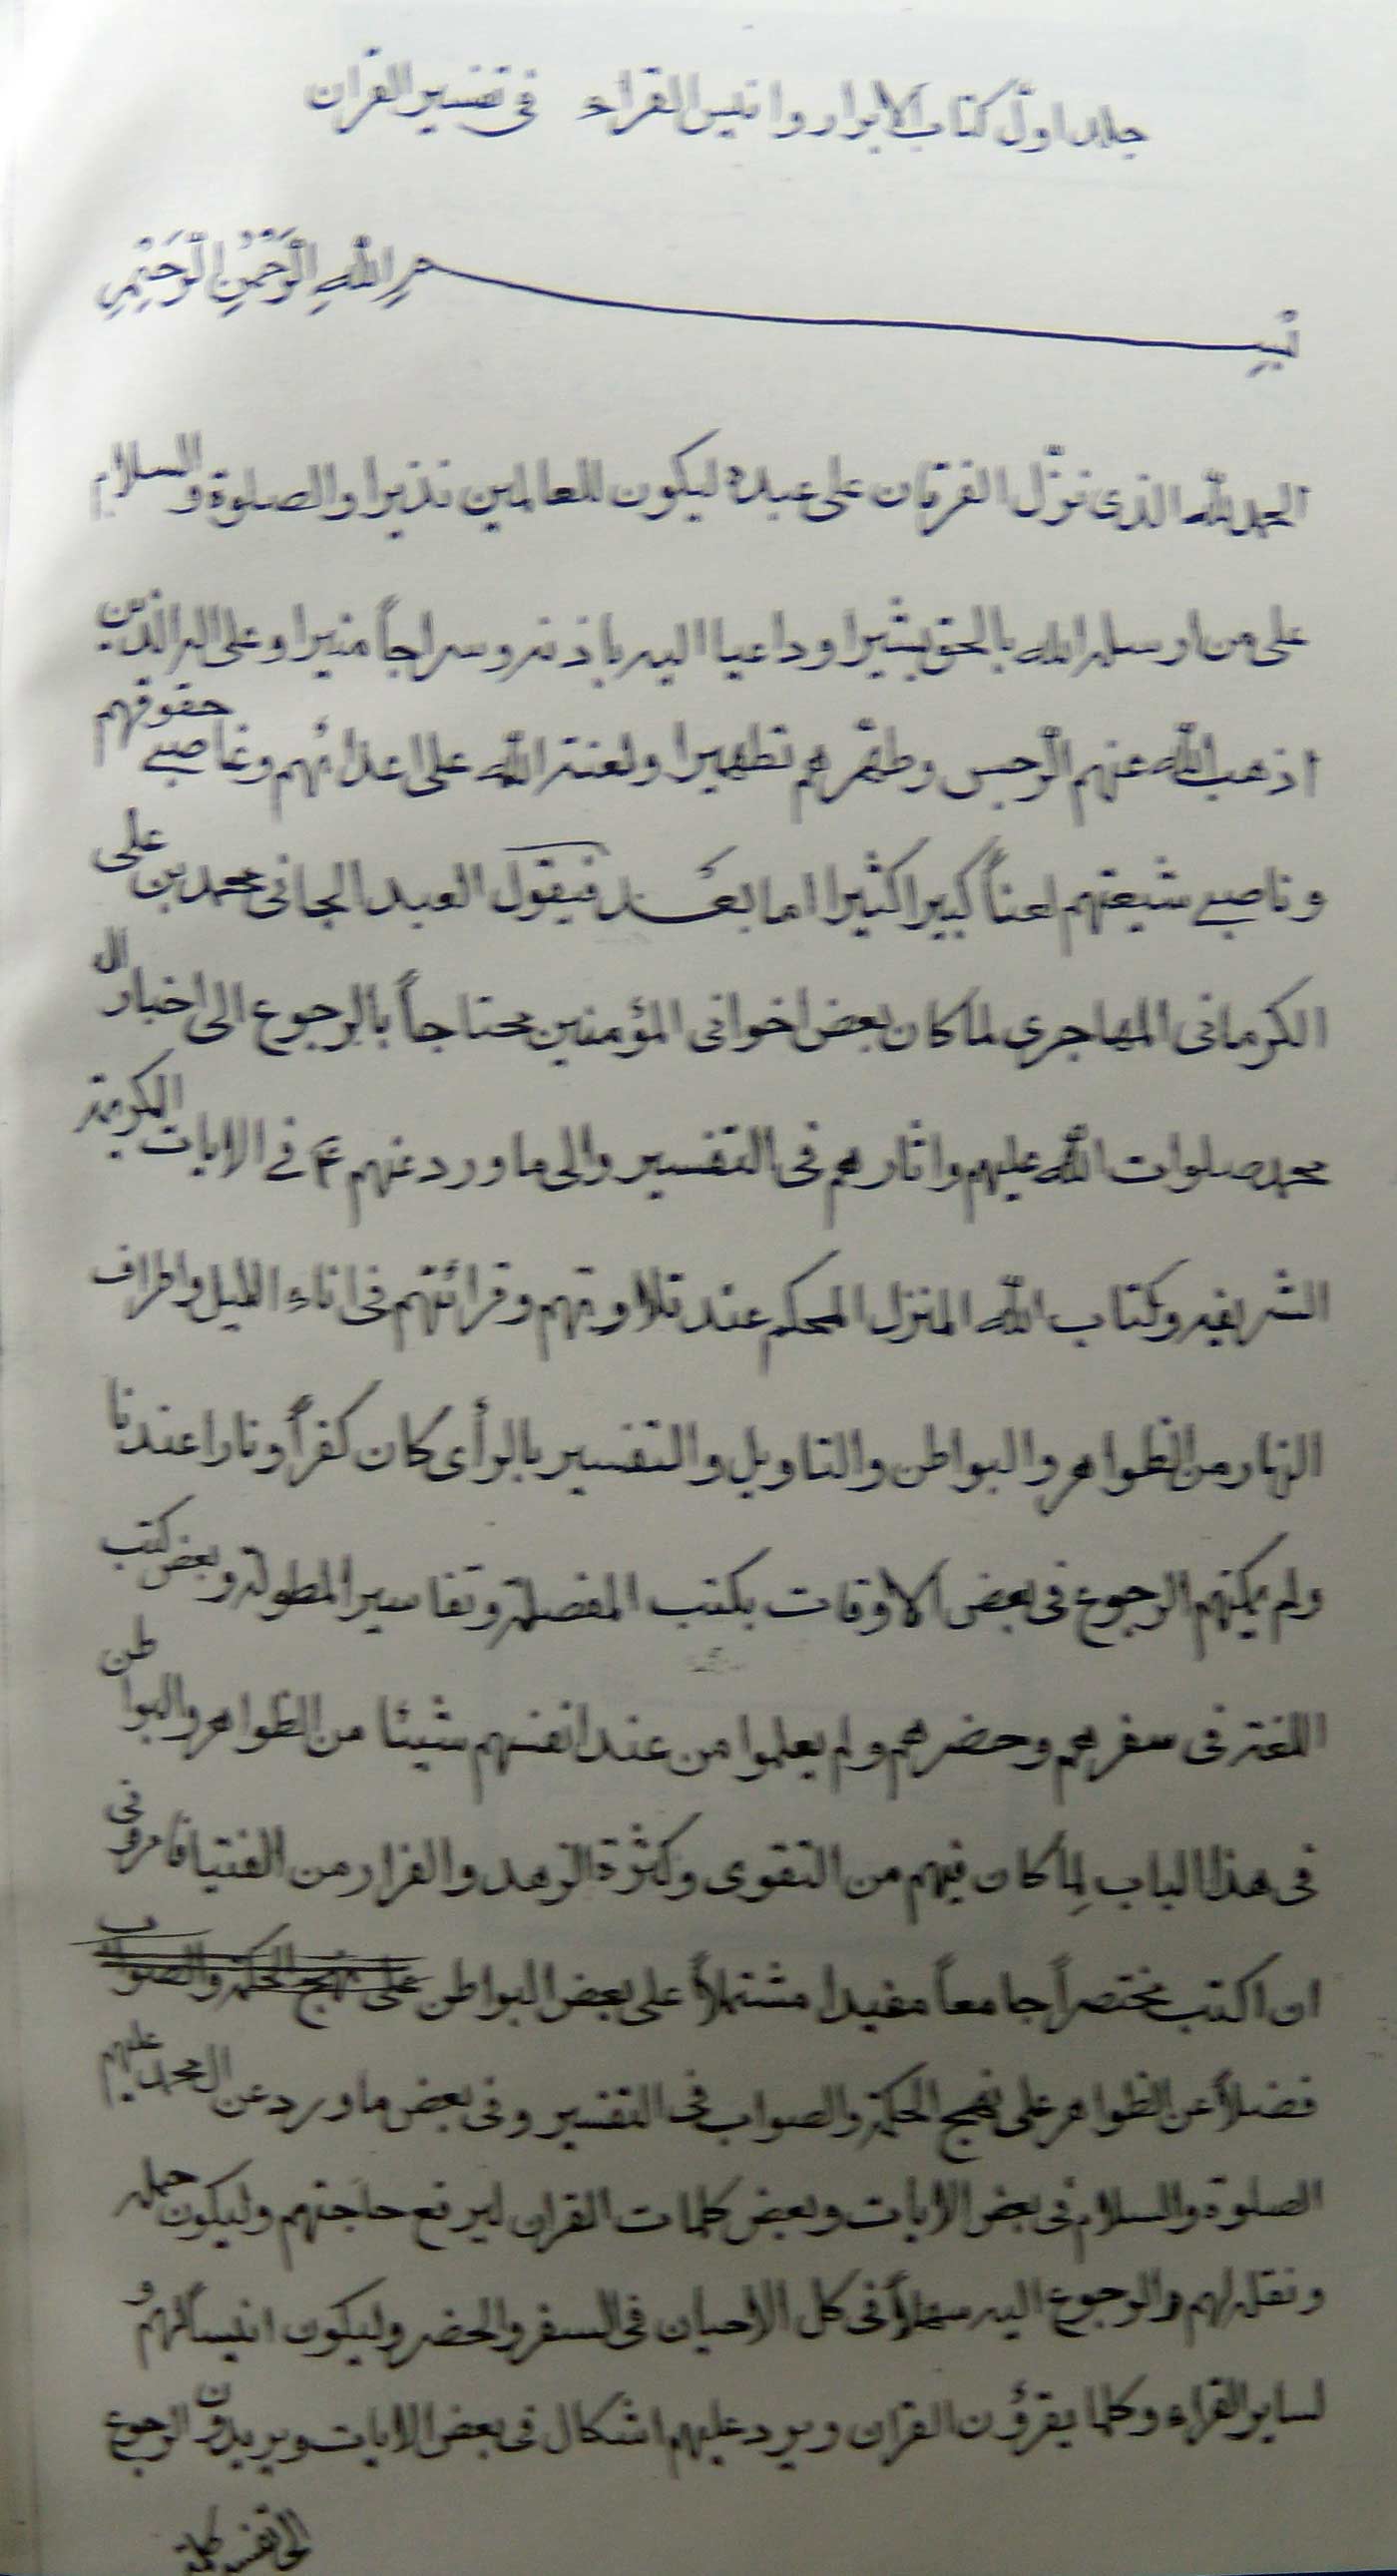 جلد اول كتاب الابرار وانيس القراء فى تفسير القران
بِسْمِ اللهِ الرَّحْمٰنِ الرَّحيٖمِ
الحمدلله الذى نزّل الفرقان على عبده ليكون للعالمين نذيرا والصلوة والسلام
على من ارسله الله بالحق بشيرا وداعيا اليه باذنه وسراجاً منيرا وعلى اله الذين
اذهب الله عنهم الرّجس وطهّرهم تطهيرا ولعنة الله على اعدائهم وغاصبى حقوقهم
وناصبى شيعتهم لعناً كبيرا كثيرا اما بعد فيقول العبد الجانى محمد بن على
الكرمانى المهاجرى لما كان بعض اخوانى المؤمنين محتاجاً بالرجوع الى اخبار ال
محمد صلوات الله عليهم واثارهم فى التفسير والى ما ورد عنهم ع فى الايات الكريمة
الشريفه وكتاب الله المنزل المحكم عند تلاوتهم وقرائتهم فى اناء الليل واطراف
النهار من الظواهر والبواطن والتاويل والتفسير بالرأى كان كفراً ونارا عندنا
ولم يمكنهم الرجوع فى بعض الاوقات بكتب المفصلة وتفاسير المطولة وبعض كتب
اللغة فى سفرهم وحضرهم ولم يعلموا من عند انفسهم شيئا من الظواهر والبواطن
فى هذا الباب لِما كان فيهم من التقوى وكثرة الزهد والفرار من الفتيا فامرونى
ان اكتب مختصراً جامعاً مفيدا مشتملاً على بعض البواطن على نهج الحكمة والصواب
فضلاً عن الظواهر على نهج الحكمة والصواب فى التفسير وفى بعض ما ورد عن ال محمد عليهم
الصلوة والسلام فى بعض الايات وبعض كلمات القران ليرتفع حاجتهم وليكون حمله
ونقله لهم والرجوع اليه سهلاً فى كل الاحيان فى السفر والحضر وليكون انيساً لهم و
لساير القراء وكلما يقرؤن القران ويرد عليهم اشكال فى بعض الايات ويريدون الرجوع